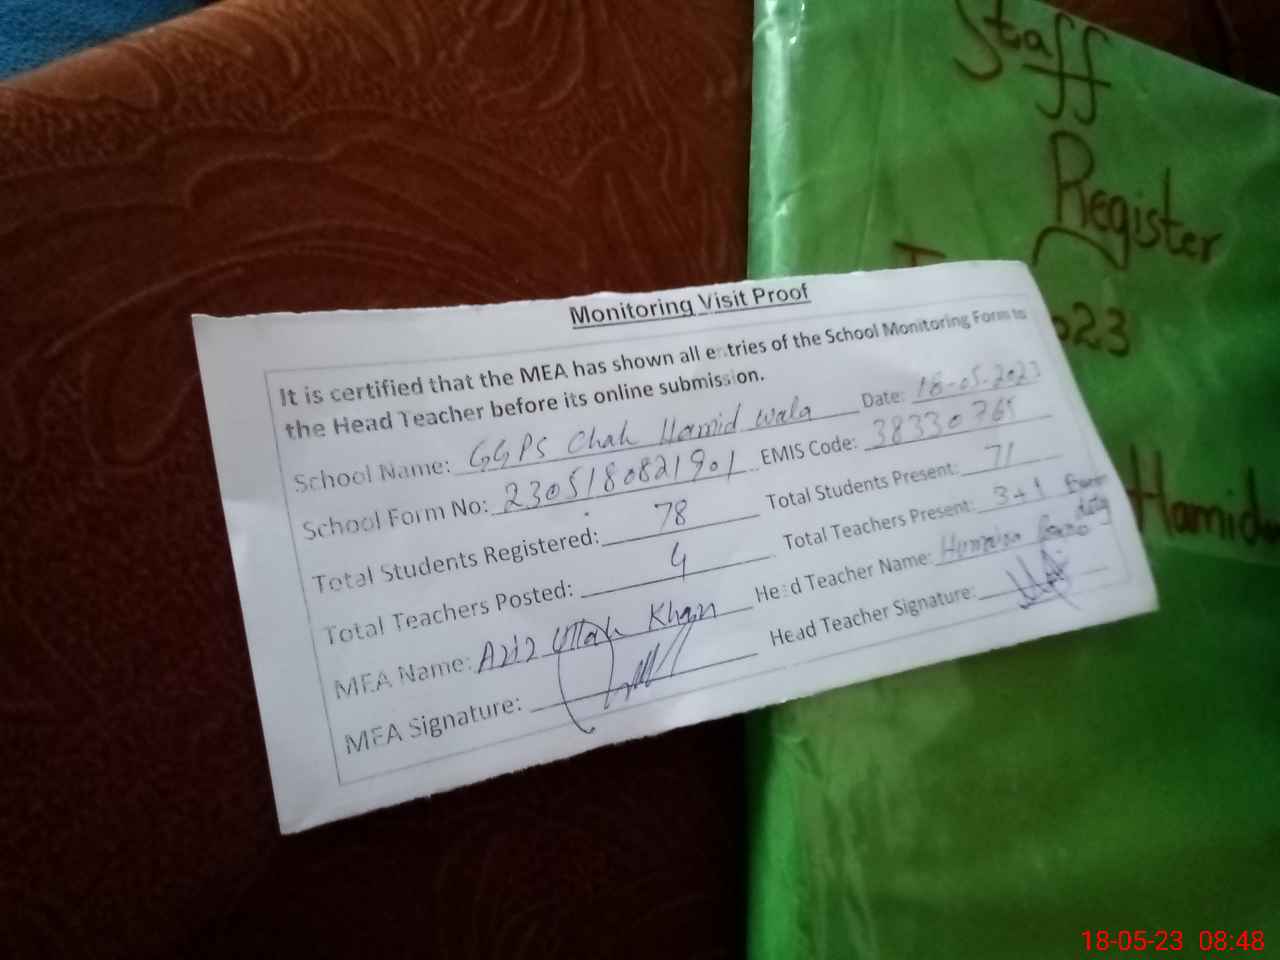 Staff
Register
2023
Hamidw
Monitoring Visit Proof
It is certified that the MEA has shown all entries of the School Monitoring Form to
the Head Teacher before its online submission.
School Name: GGPS Chah Hamid Wala Date: 18-05-2023
School Form No: 2305180821901 EMIS Code: 38330765
Total Students Registered: 78 Total Students Present: 71
Total Teachers Posted: 4 Total Teachers Present: 3+1 duty
MEA Name: Aziz Ullah Khan Head Teacher Name:
MEA Signature: Head Teacher Signature:
18-05-23 08:48